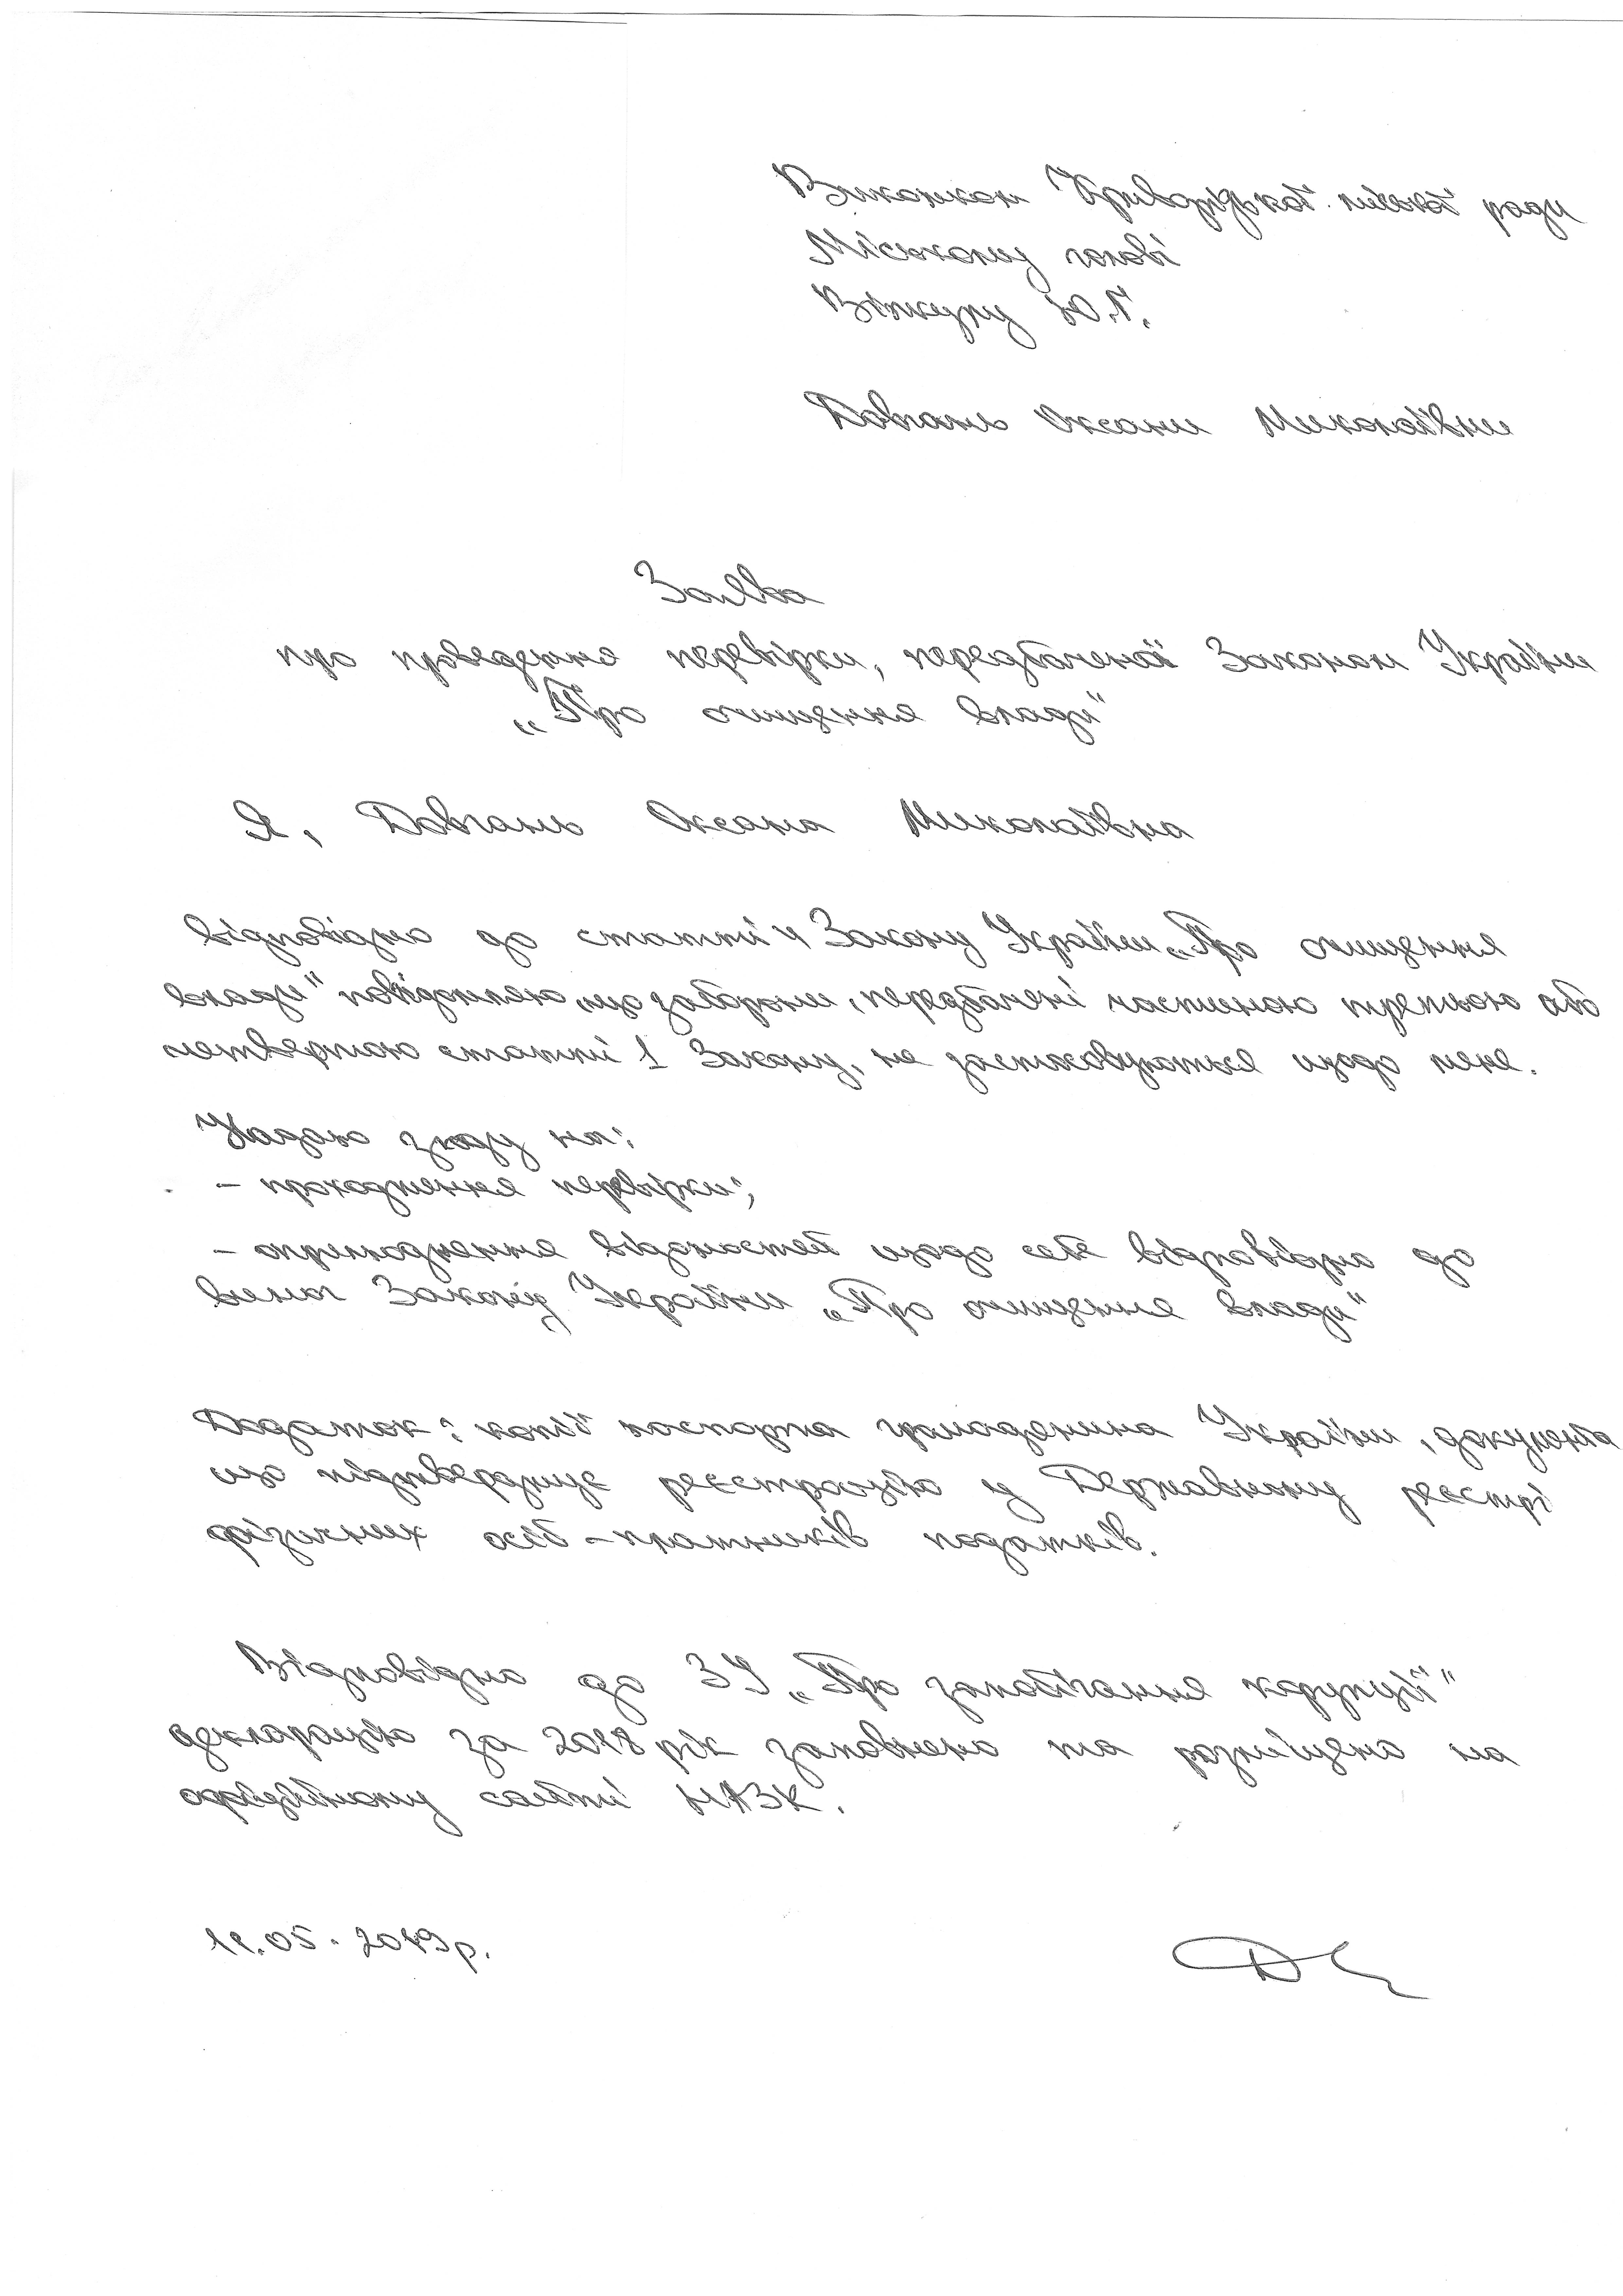 Виконком Криворізької міської ради
Міському голові
Вілкулу Ю.Г.
Довгань Оксани Миколаївни
Заява
про проведення перевірки, передбаченої Законом України
„Про очищення влади"
Я, Довгань Оксана Миколаївна
відповідно до статті 4 Закону України „Про очищення
влади" повідомляю, що заборони, передбачені частиною третьою або
четвертою статті 1 Закону, не застосовуються щодо мене.
Надаю згоду на:
- проходження перевірки;
- оприлюднення відомостей щодо себе відповідно до
вимог Закону України „Про очищення влади"
Додаток: копії паспорта громадянина України, документа
що підтверджує реєстрацію у Державному реєстрі
фізичних осіб - платників податків.
Відповідно до ЗУ „Про запобігання корупції"
декларацію за 2018 рік заповнено та розміщено на
офіційному сайті НАЗК.
05.2019р.